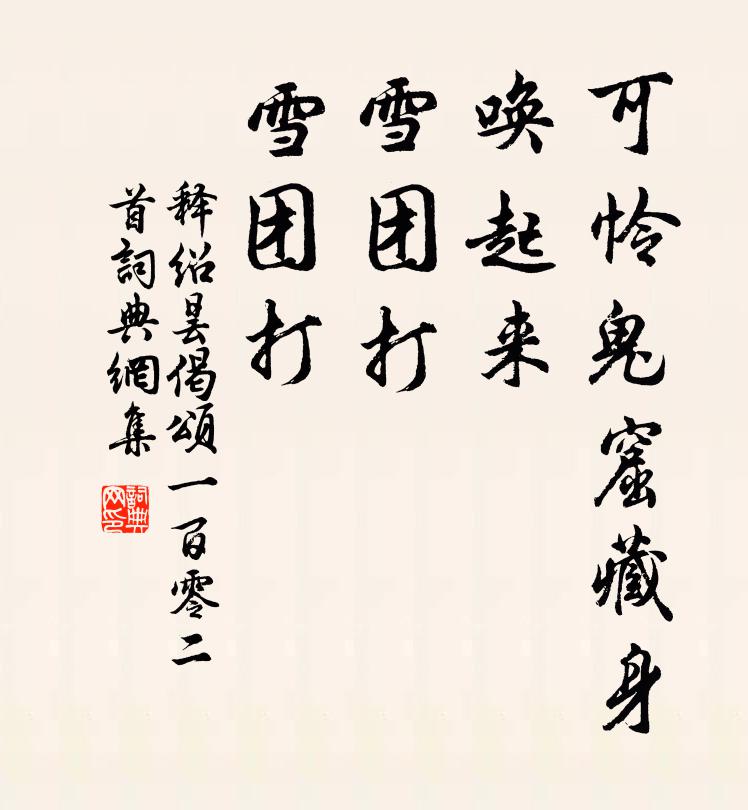 可怜鬼窟藏身
唤起来
雪团打
雪团打
释绍昙偈頌一百零二
首詞典網集
詞典网印